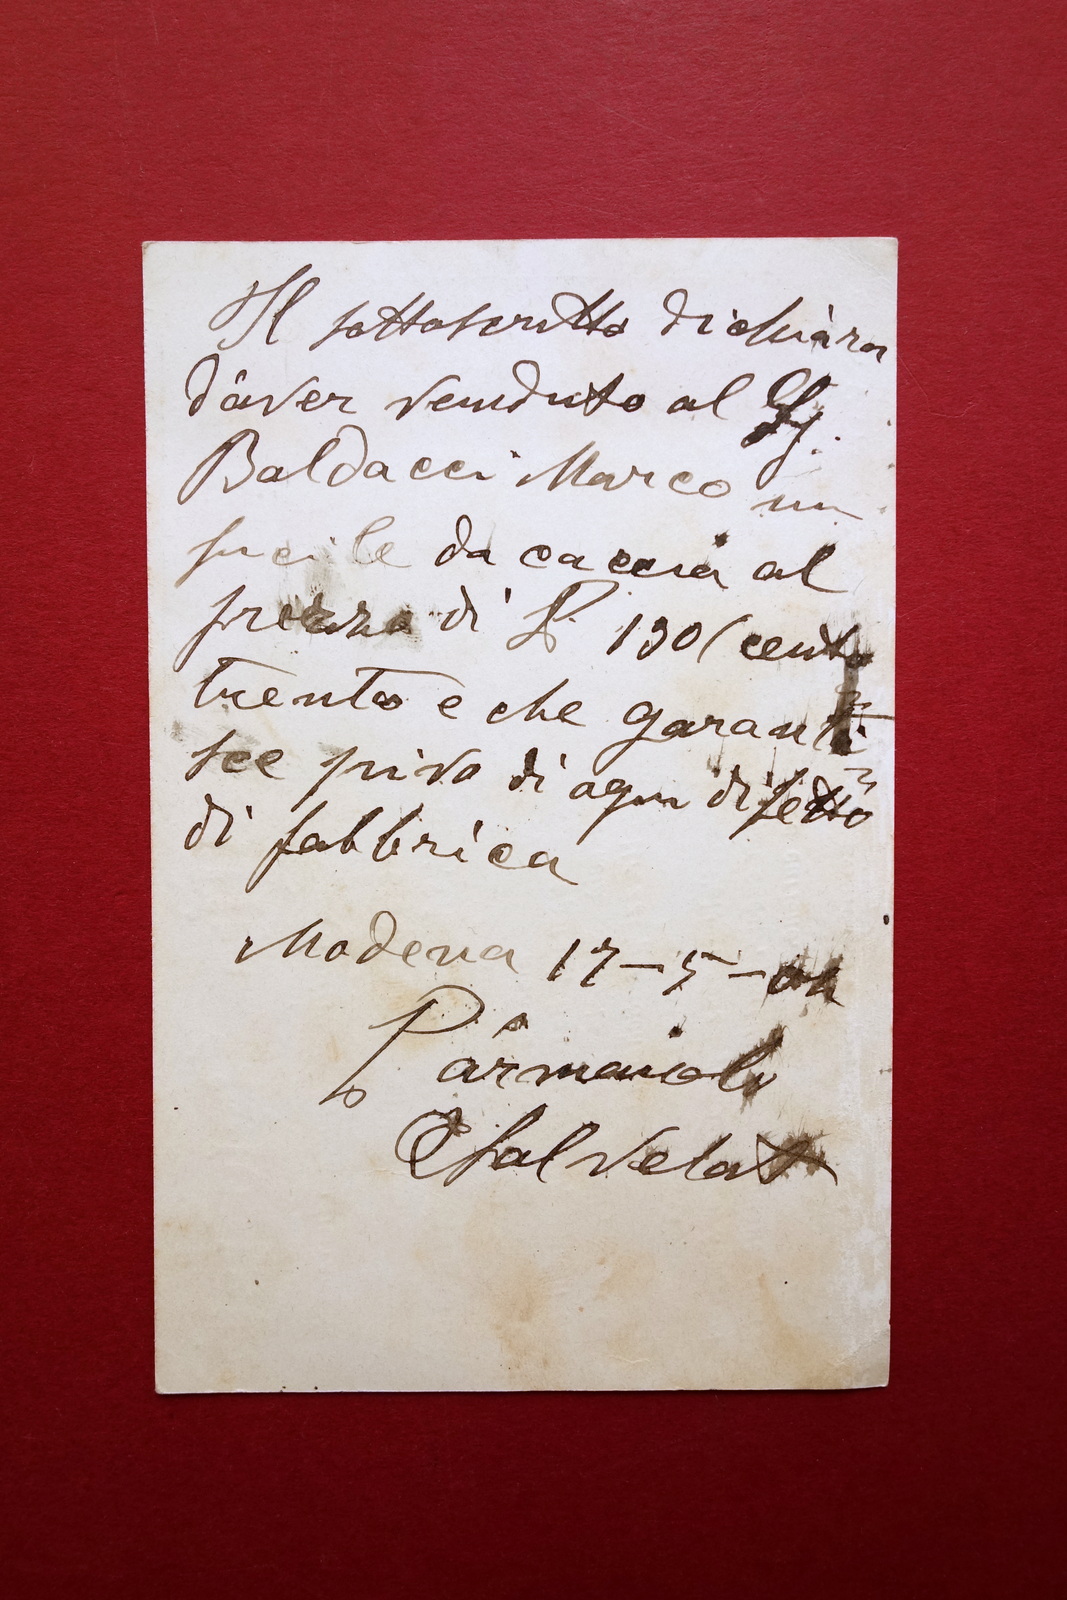 Il sottoscritto dichiara
d'aver venduto al Sg.
Baldacci Marco un
fucile da caccia al
prezzo di £ 130 (cento
trento e che garanti
sce privo di ogni difetto
di fabbrica
Modena 17-5-
Parmaioli